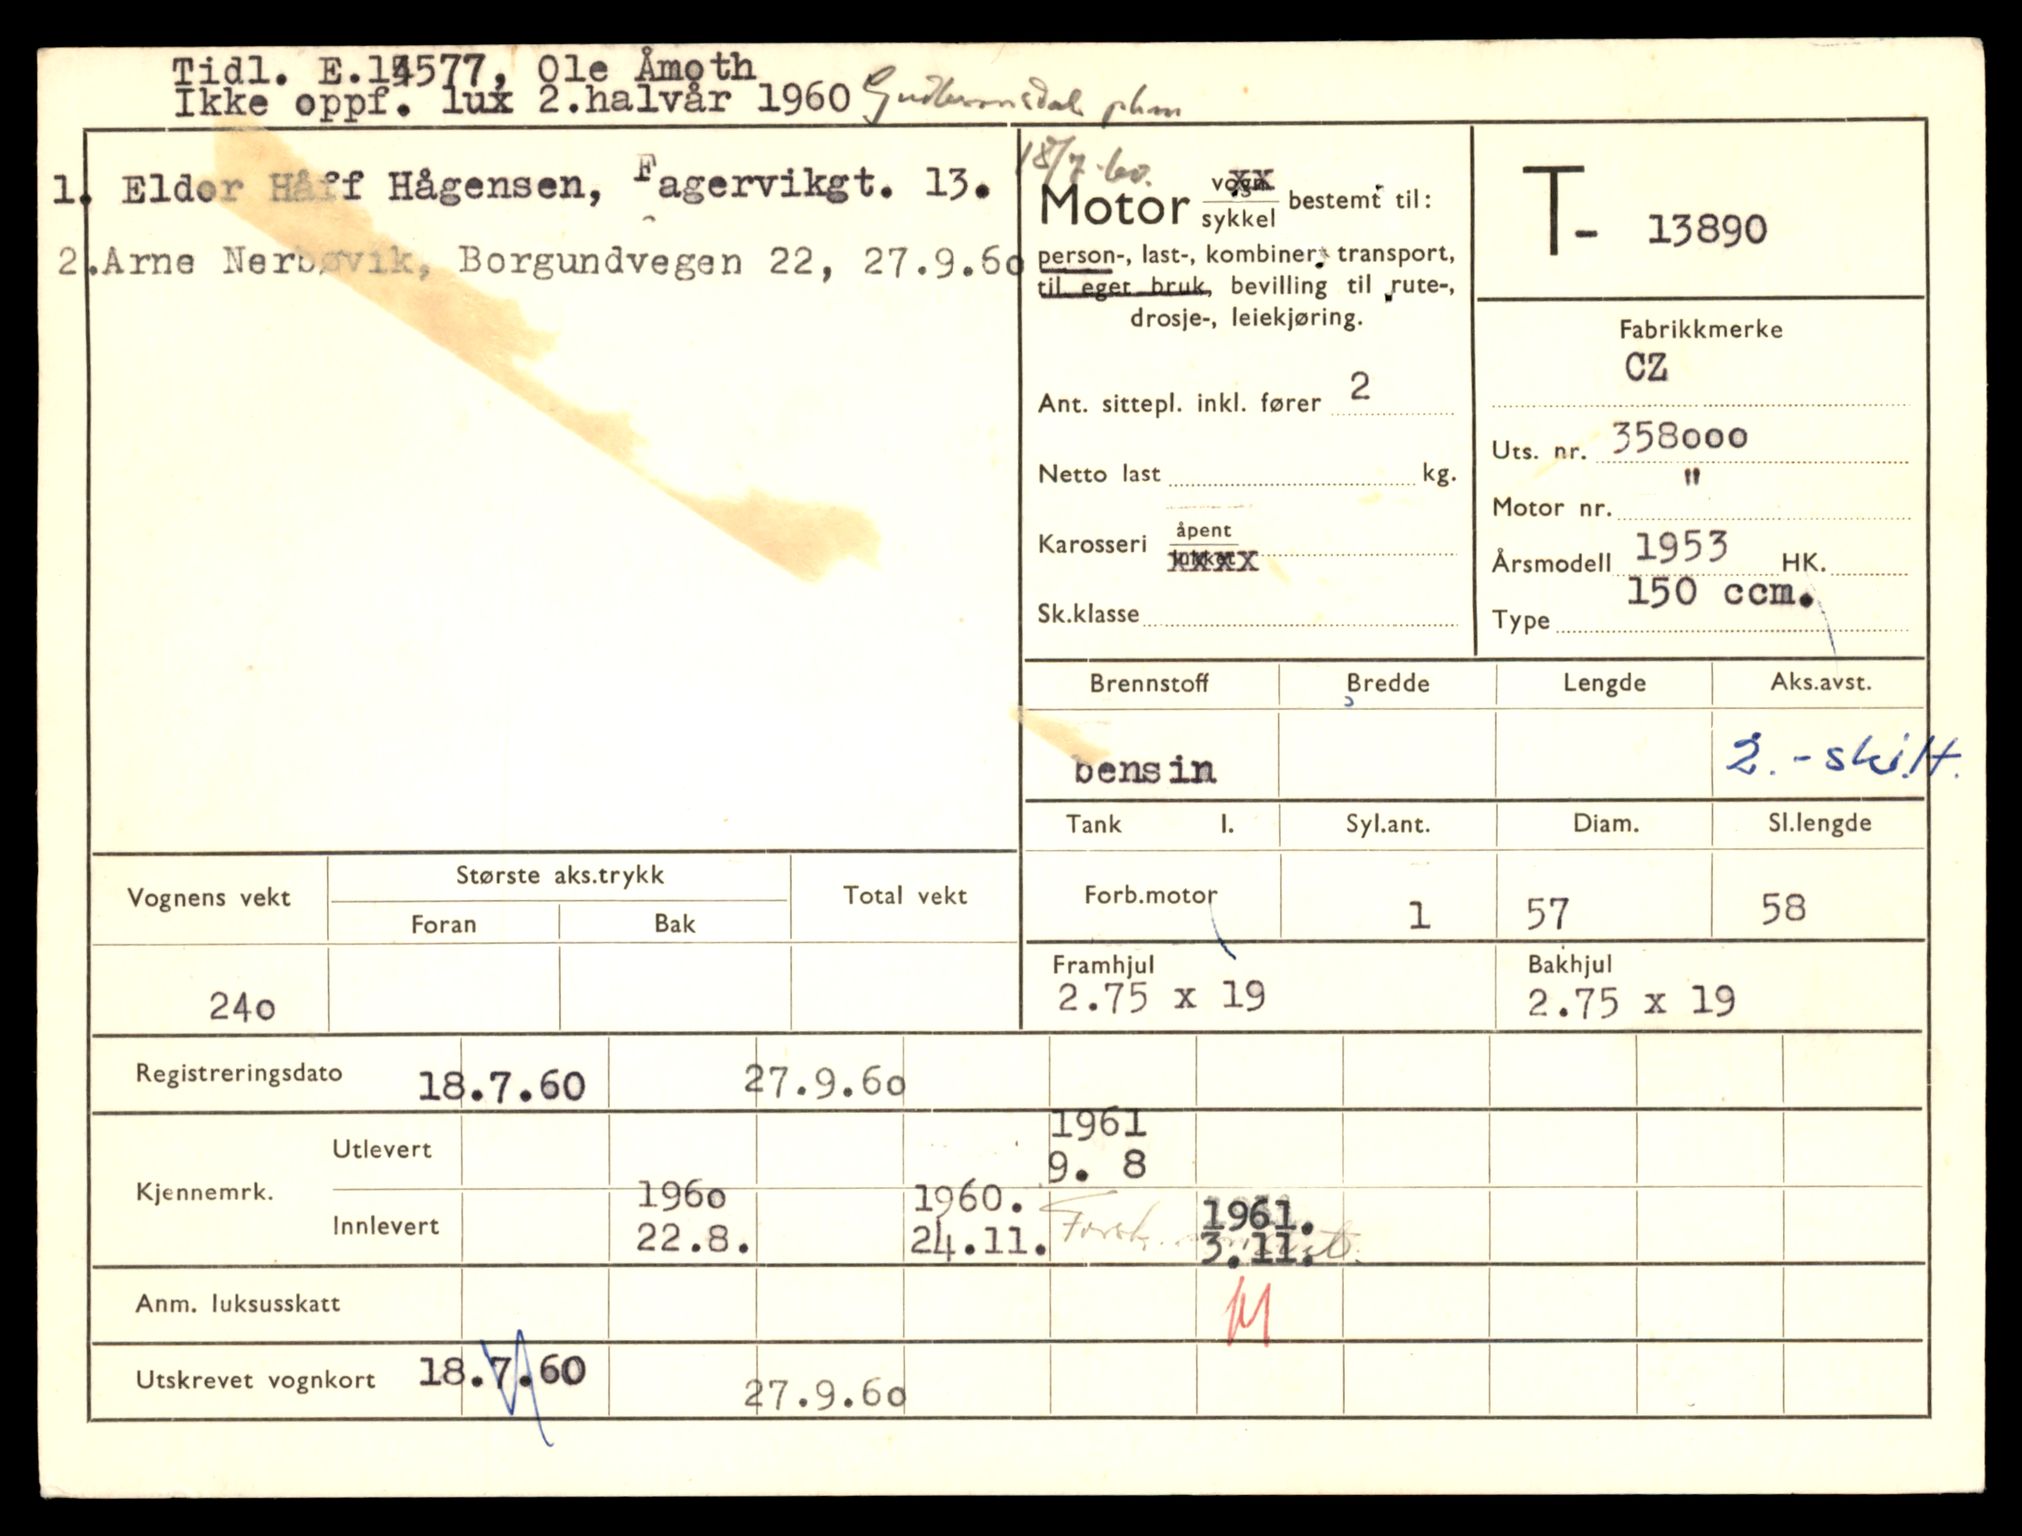 Tidl. E.14577, Ole Åmoth
Ikke oppf. lux 2.halvår 1960 phm
18/7-60.
1. Eldor Håff Hågensen, Fagervikgt. 13.
2.Arne Nerbøvik, Borgundvegen 22, 27.9.60
Motor vogn sykkel bestemt til:
person-, last-, kombiner. transport,
til eget bruk, bevilling til rute-,
drosje-, leiekjøring.
Ant. sittepl. inkl. fører 2
Netto last kg.
Karosseri åpent lukket
Sk.klasse
T- 13890
Fabrikkmerke
CZ
Uts. nr. 358000
Motor nr. "
Årsmodell 1953 HK.
Type 150 ccm.
Brennstoff Bredde Lengde Aks.avst.
bensin 2.-skilt.
Tank l. Syl.ant. Diam. Sl.lengde
Forb.motor 1 57 58
Framhjul Bakhjul
2.75 x 19 2.75 x 19
Vognens vekt Største aks.trykk Total vekt
Foran Bak
240
Registreringsdato 18.7.60 27.9.60
Kjennemrk.
Utlevert 1961
9. 8
Innlevert 1960 1960. 1961.
22.8. 24.11. 3.11.
Anm. luksusskatt
Utskrevet vognkort 18.7.60 27.9.60